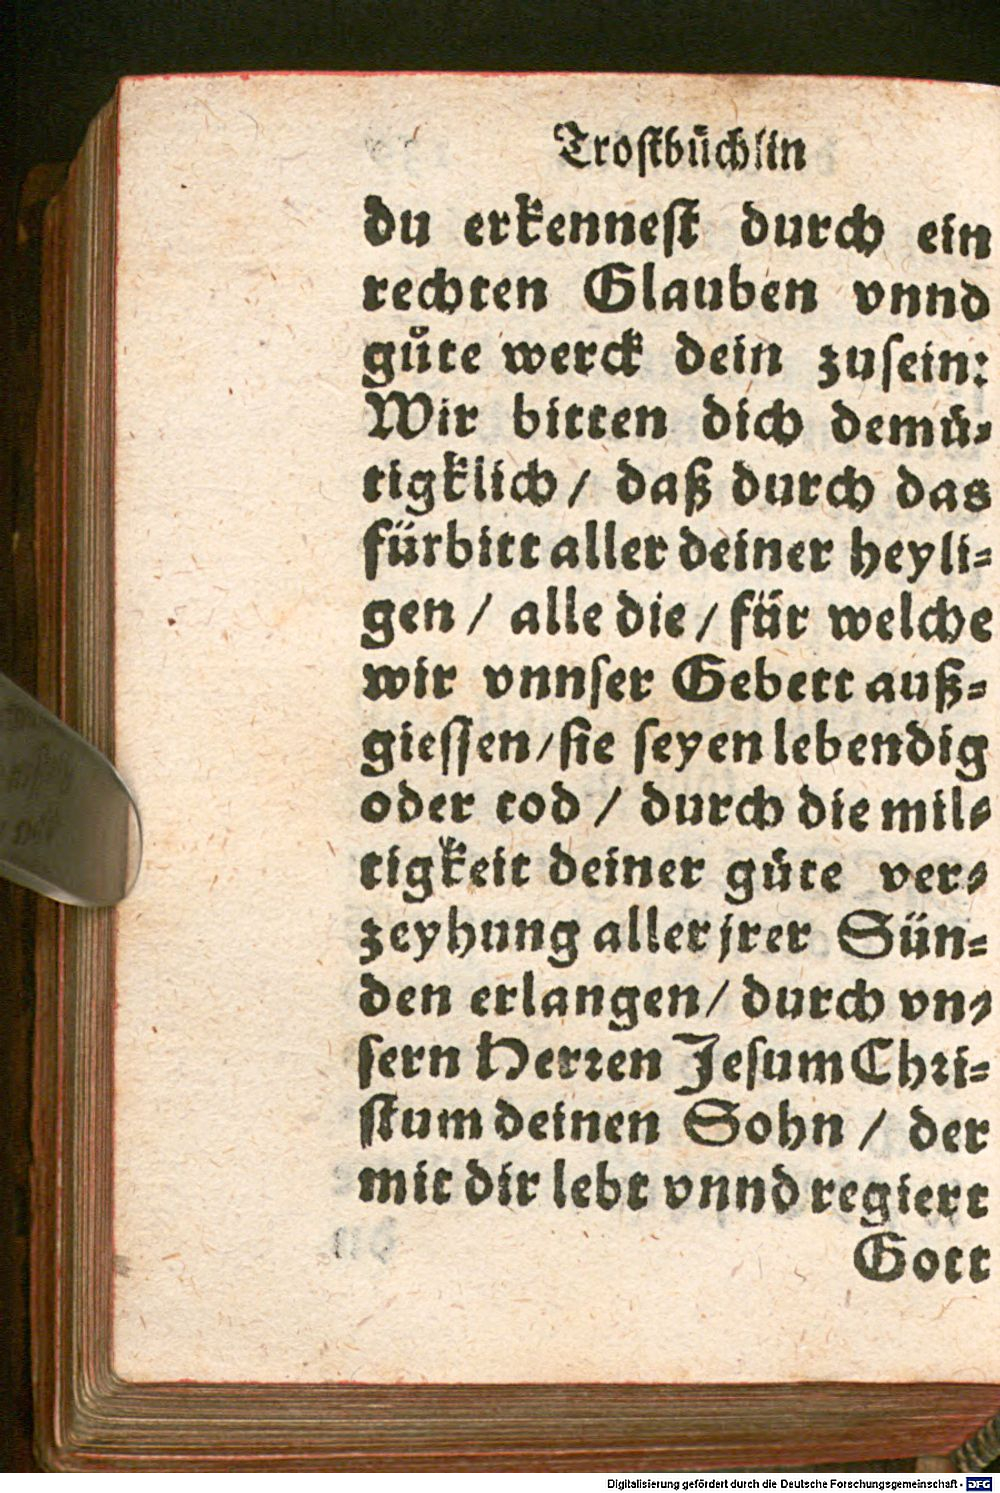 Trostbüchlin
du erkennest durch ein
rechten Glauben vnnd
gůte werck dein zusein:
Wir bitten dich demü⸗
tigklich / daß durch das
fürbitt aller deiner heyli⸗
gen / alle die / für welche
wir vnnser Gebett auß⸗
giessen / sie seyen lebendig
oder tod / durch die mil⸗
tigkeit deiner gůte ver⸗
zeyhung aller jrer Sün⸗
den erlangen / durch vn⸗
sern Herren Jesum Chri⸗
stum deinen Sohn / der
mit dir lebt vnnd regiert
Gott
Digitalisierung gefördert durch die Deutsche Forschungsgemeinschaft - DFG